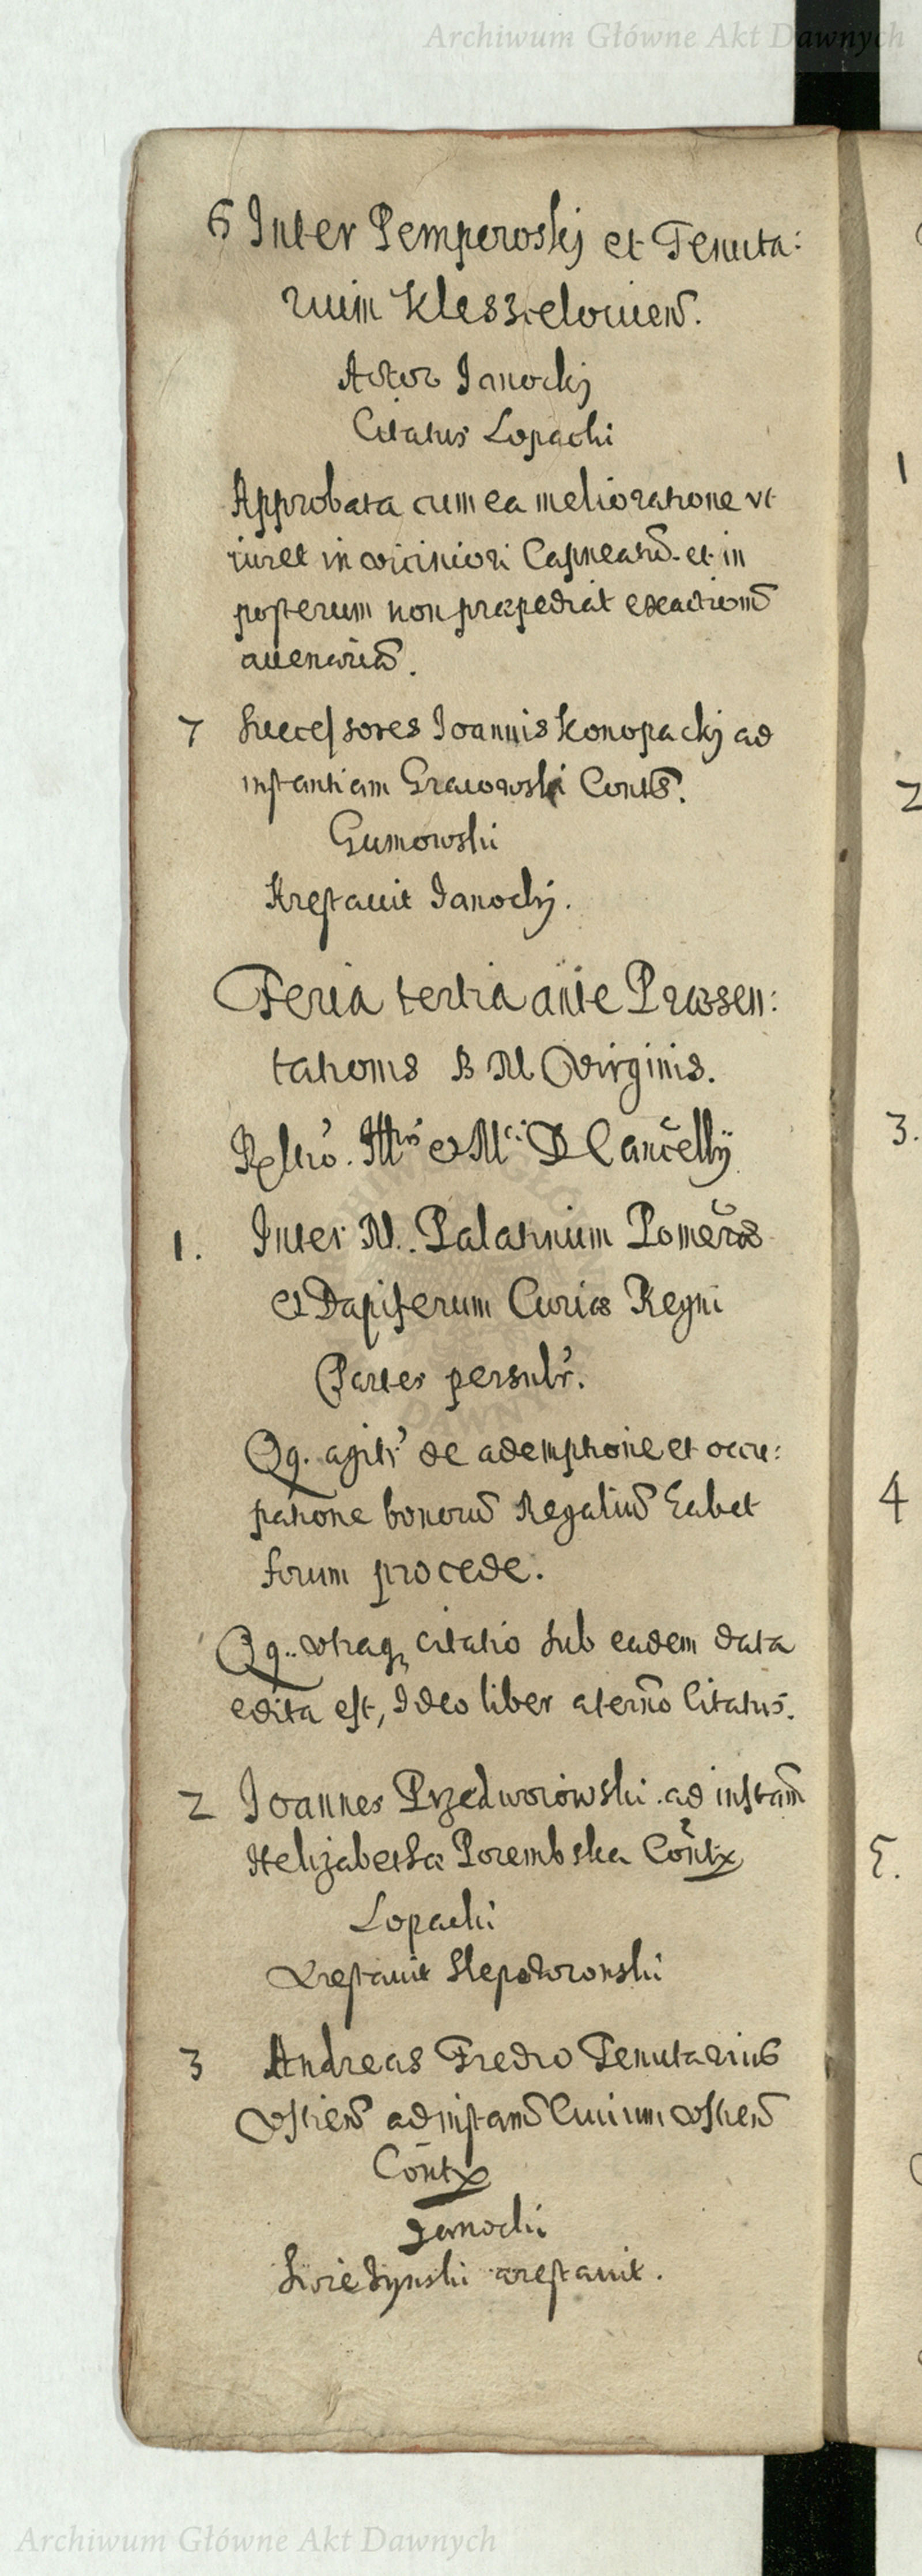 Archiwum Główne Akt Dawnych
6 Inter Pemperoskj et Tenuta:
rium Kleszczelouien.
Actor Janockj
Citatus Lopacki
Approbata cum ea melioratione vt
iuret in viciniori et in
posterum non præpediat exactionē
auenariā.
7 Successores Joannis Konopackj ad
instantiam Grauowski Conts.
Gumowski
Arestauit Janockj.
Feria tertia ante Præsen:
tationis B M Virginis.
M D Cancellÿ
1. Inter M. Palatinum Pomeræ
et Dapiferum Curiæ Regni
Partes personlr.
Qq. agitr de ademptione et occu:
patione bonorū Regaliū habet
forum procede.
Qq. vtraq citatio sub eadem data
edita est, Ideo liber a termō Citatus.
2 Joannes Przedworowski ad instam
Helizabetha Porembska Contx
Lopacki
Arestauit Slepowronski
3 Andreas Fredro Tenutarius
ad instanā Ciuium
Contx
Janocki
arestauit.
1
2
3.
4
5.
Archiwum Główne Akt Dawnych